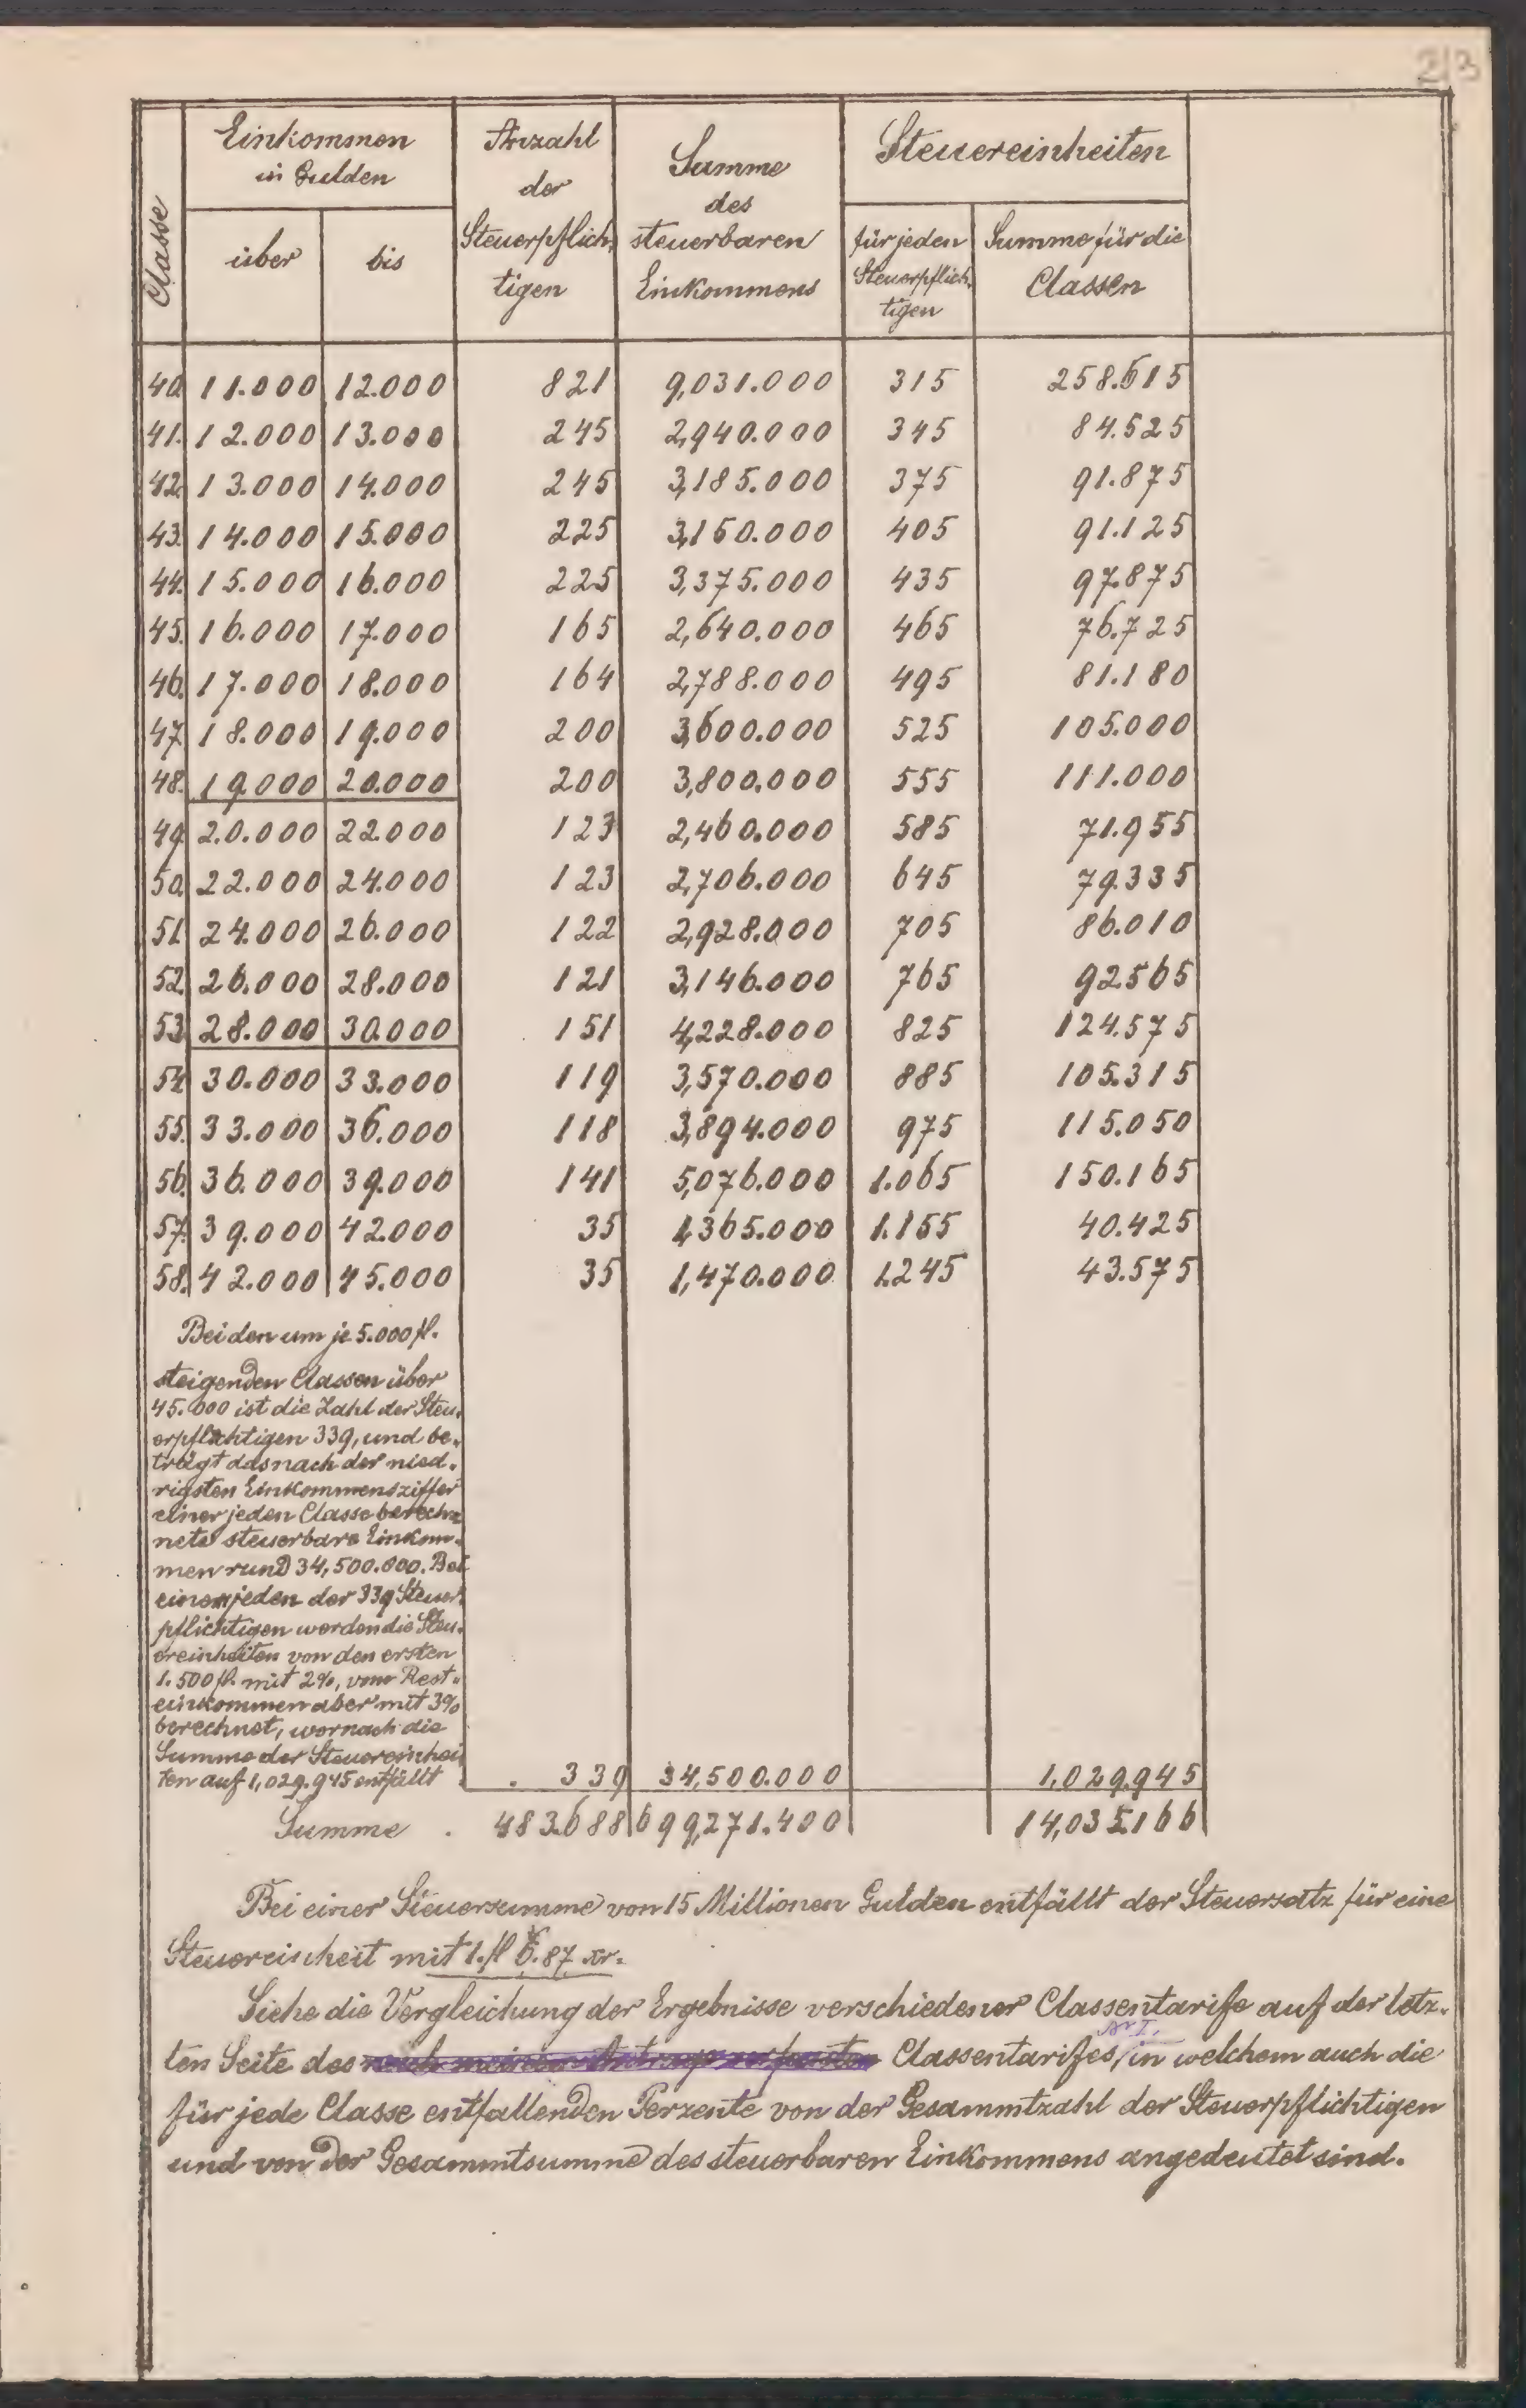 2/3
Classe
Einkommen
in Gulden
über
bis
Anzahl
der
Steuerpflich-
tigen
Summe
des
steuerbaren
Einkommens
Steuereinheiten
für jeden
Steuerpflich-
tigen
Summe für die
Classen
40. 11.000 12.000 821 9,031.000 315 258.615
41. 12.000 13.000 245 2,940.000 345 84.525
42. 13.000 14.000 245 3,185.000 375 91.875
43. 14.000 15.000 225 3,150.000 405 91.125
44. 15.000 16.000 225 3,375.000 435 97.875
45. 16.000 17.000 165 2,640.000 465 76.725
46. 17.000 18.000 164 2,788.000 495 81.180
47. 18.000 19.000 200 3,600.000 525 105.000
48. 19.000 20.000 200 3,800.000 555 111.000
49. 20.000 22.000 123 2,460.000 585 71.955
50. 22.000 24.000 123 2,706.000 645 79.335
51. 24.000 26.000 122 2,928.000 705 86.010
52. 26.000 28.000 121 3,146.000 765 92565
53. 28.000 30.000 151 4,228.000 825 124.575
54. 30.000 33.000 119 3,570.000 885 105.315
55. 33.000 36.000 118 3,894.000 975 115.050
56. 36.000 39.000 141 5,076.000 1.065 150.165
57. 39.000 42.000 35 1,365.000 1.155 40.425
58. 42.000 45.000 35 1,470.000 1.245 43.575
Bei den um je 5.000 fl.
steigenden Classen über
45.000 ist die Zahl der Steu-
erpflichtigen 339, und be-
trägt das nach der nied-
rigsten Einkommensziffer
einer jeden Classe berech-
nete steuerbare Einkom-
men rund 34,500.000. Bei
einem jeden der 339 Steuer-
pflichtigen werden die Steu-
ereinheiten von den ersten
1.500 fl. mit 2%, vom Rest-
einkommen aber mit 3%
berechnet, wornach die
Summe der Steuereinhei-
ten auf 1,029.945 entfällt . 339 34,500.000 1,029.945
Summe . 483.688 699,271.400 14,035.166
Bei einer Steuersumme von 15 Millionen Gulden entfällt der Steuersatz für eine
Steuereinheit mit 1. fl 6.87 xr.
Siehe die Vergleichung der Ergebnisse verschiedener Classentarife auf der letz-
Nr I.
ten Seite des nach meinem Antrage verfassten Classentarifes, in welchem auch die
für jede Classe entfallenden Perzente von der Gesammtzahl der Steuerpflichtigen
und von der Gesammtsumme des steuerbaren Einkommens angedeutet sind.